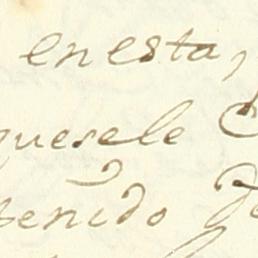 en esta,
quesele
tenido de